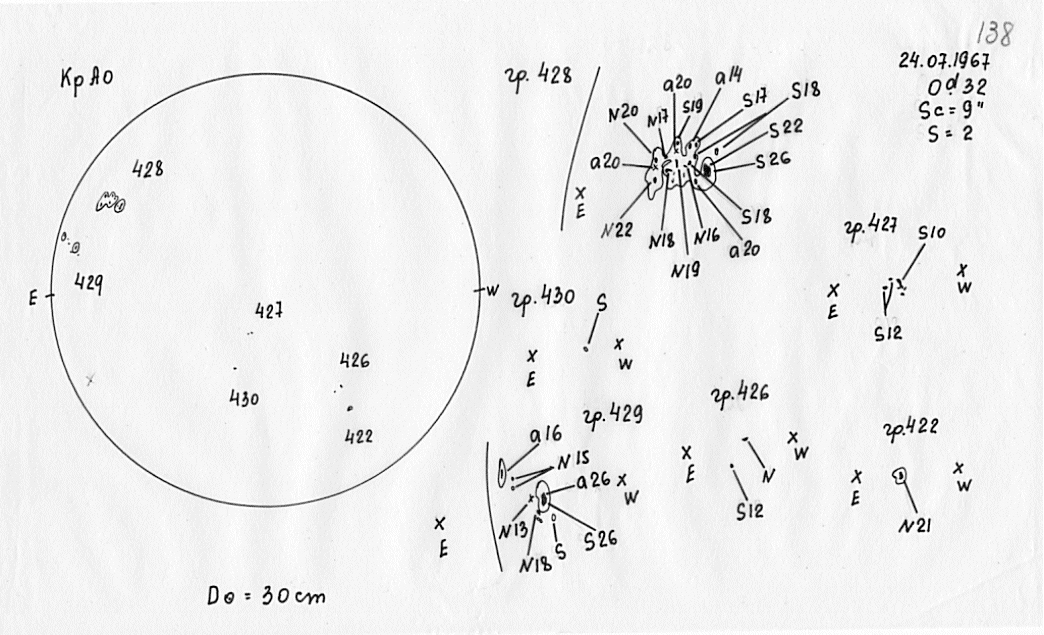 138
24.07.1967
0ᵈ32
Sc = 9"
S = 2
КрАО
428
429
E
W
427
426
430
422
D⊙ = 30 cm
гр. 428
a20
a14
S19
S17
S18
N20
N17
S22
a20
S26
x
E
N22
N18
N16
S18
a20
N19
гр. 427
S10
x
E
x
W
S12
гр. 430
S
x
E
x
W
гр. 429
a16
N15
a26
x
W
x
E
N13
N18
S
S26
гр. 426
x
E
x
W
N
S12
гр. 422
x
E
x
W
N21